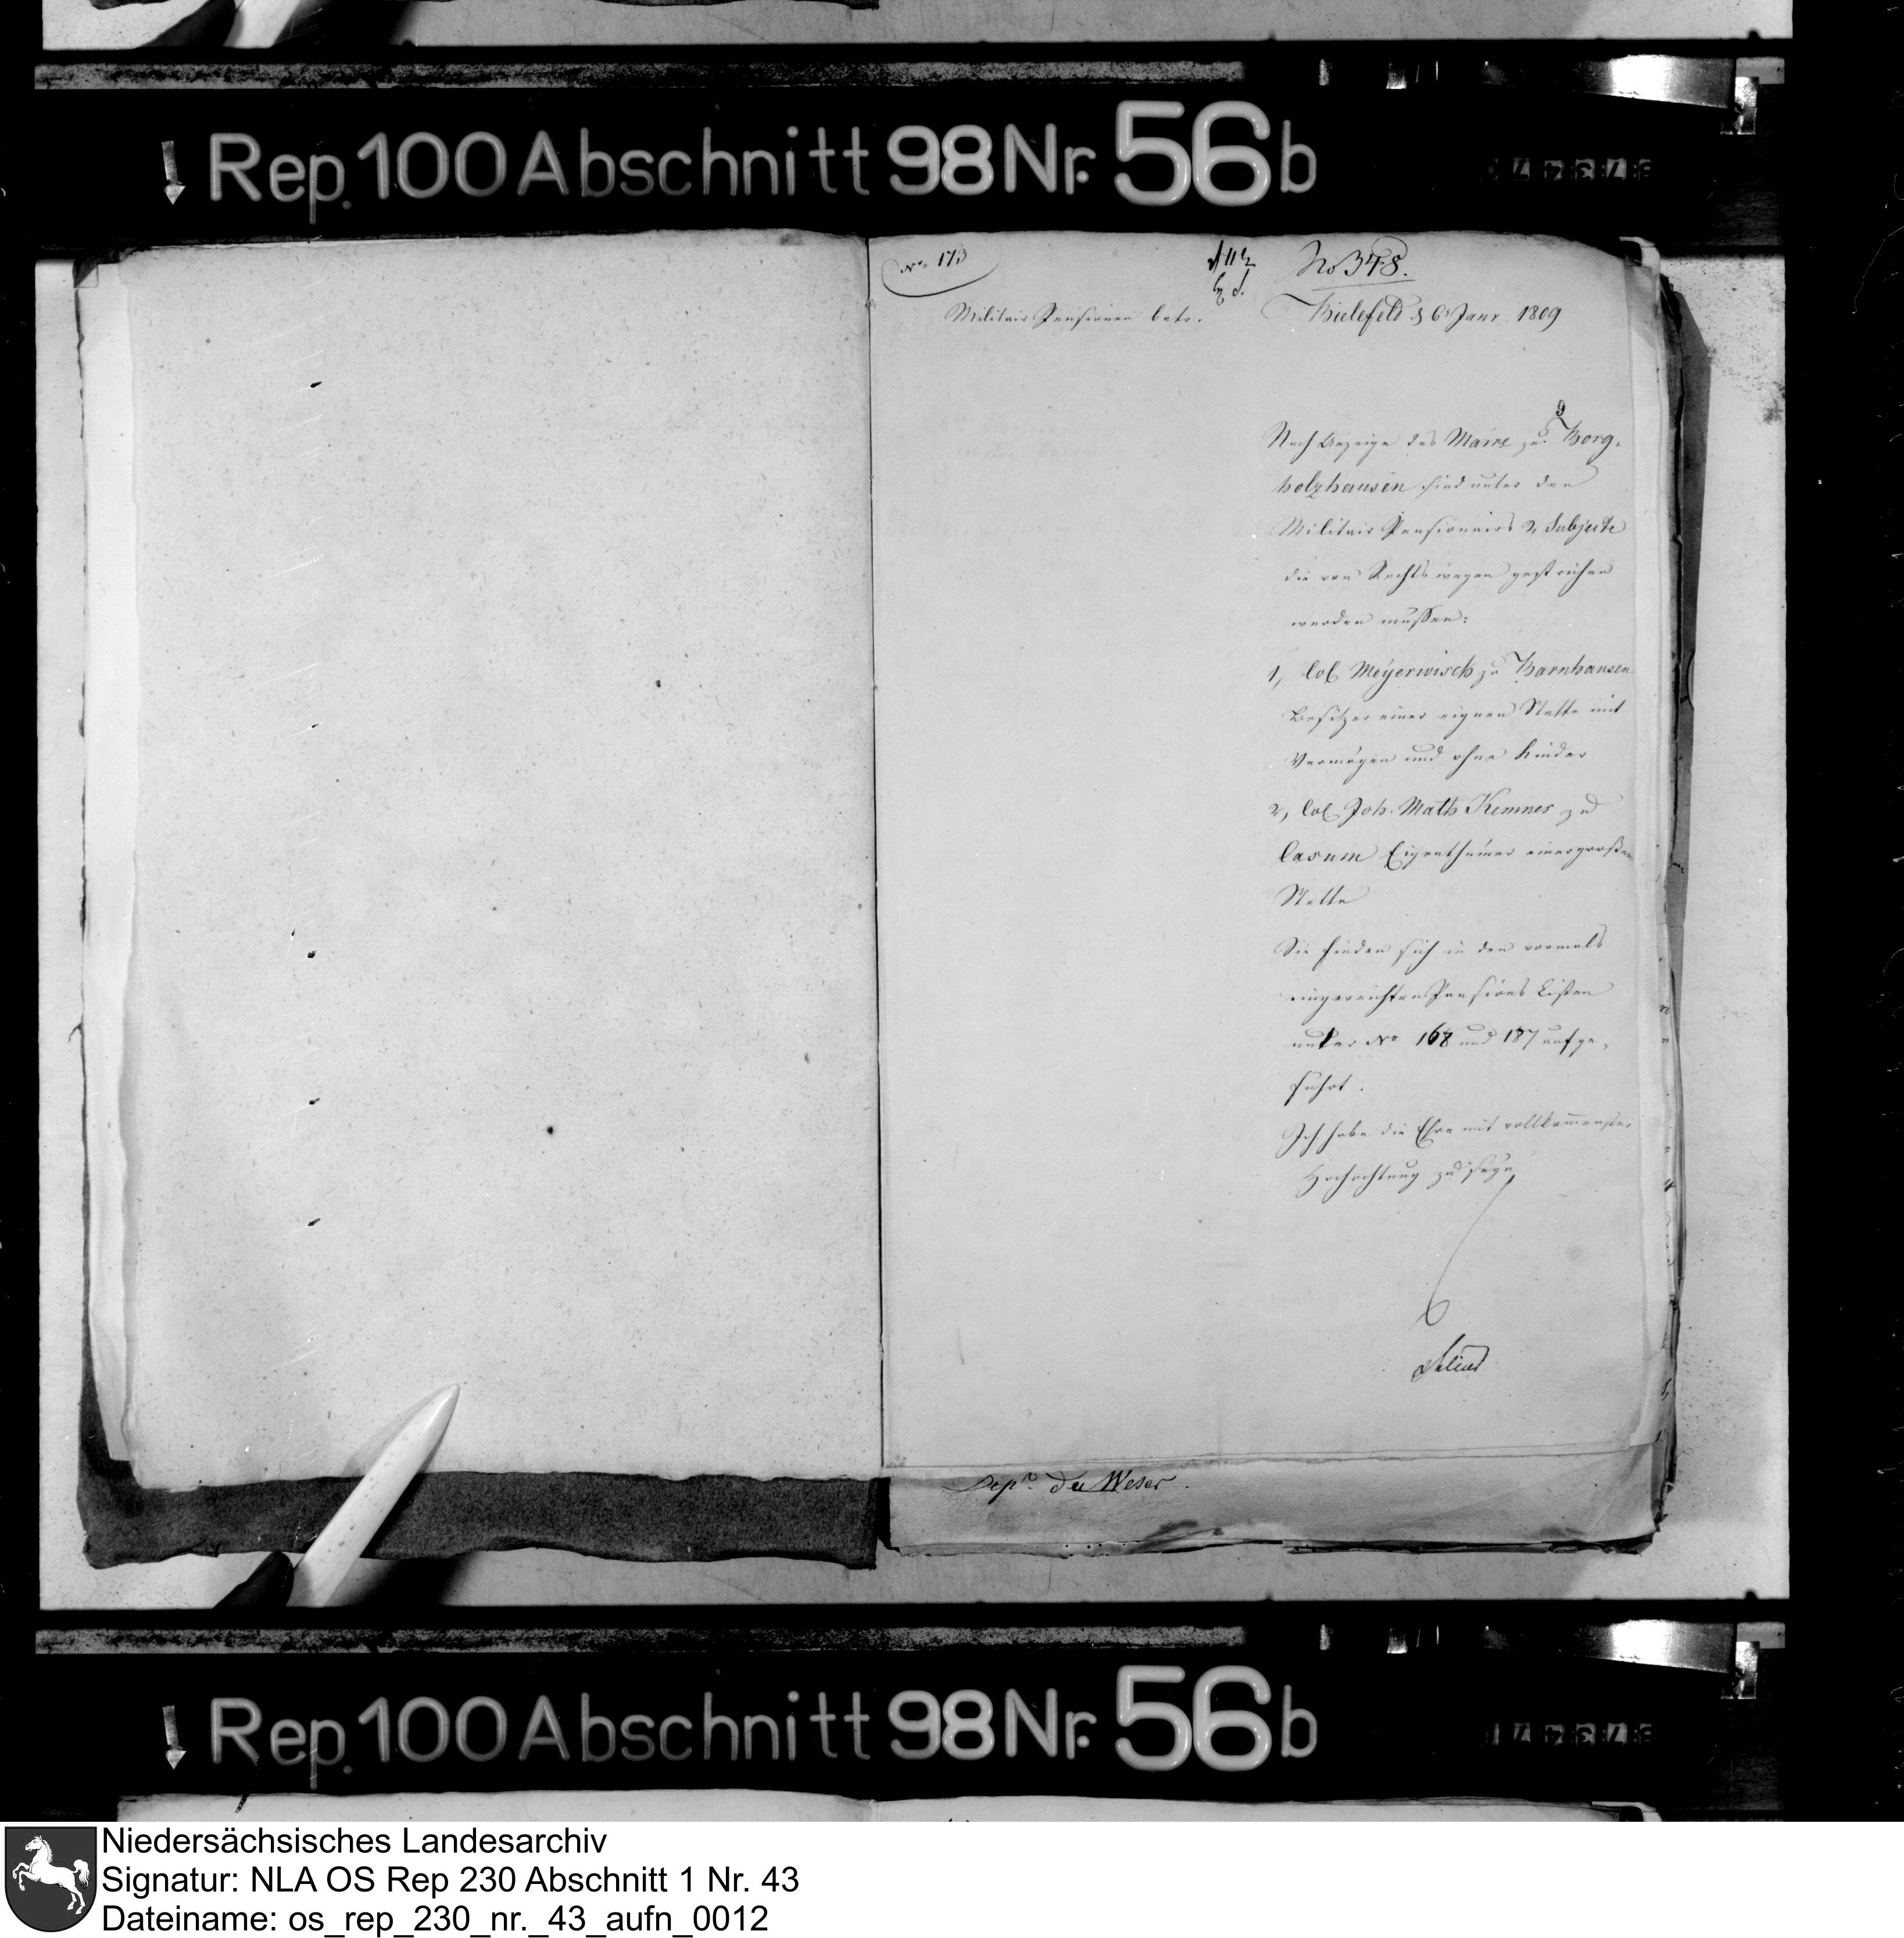 Rep. 100 Abschnitt 98 Nr. 56 b
No. 173
No 348.
Militair Pensionen betr.
Bielefeld d 6t Janr. 1809
9
Nach Anzeige des Maire zu Borg-
holzhausen sind unter den
Militair Pensionairs 2 Subjecte
die von Rechts wegen gestrichen
werden müssen:
1, Col Meyerwisch zu Barnhausen
Besitzer einer eignen Stette mit
Vermögen und ohne Kinder
2, Col Joh. Math Kemner zu
Casum Eigenthümer einer großen
Stette
Sie finden sich in den vormals
eingereichten Pensions Listen
unter No 168 und 187 aufge-
führt.
Ich habe die Ehre mit vollkommenster
Hochachtung zu seyn
Dept. du Weser.
Rep. 100 Abschnitt 98 Nr. 56 b
Niedersächsisches Landesarchiv
Signatur: NLA OS Rep 230 Abschnitt 1 Nr. 43
Dateiname: os_rep_230_nr._43_aufn_0012